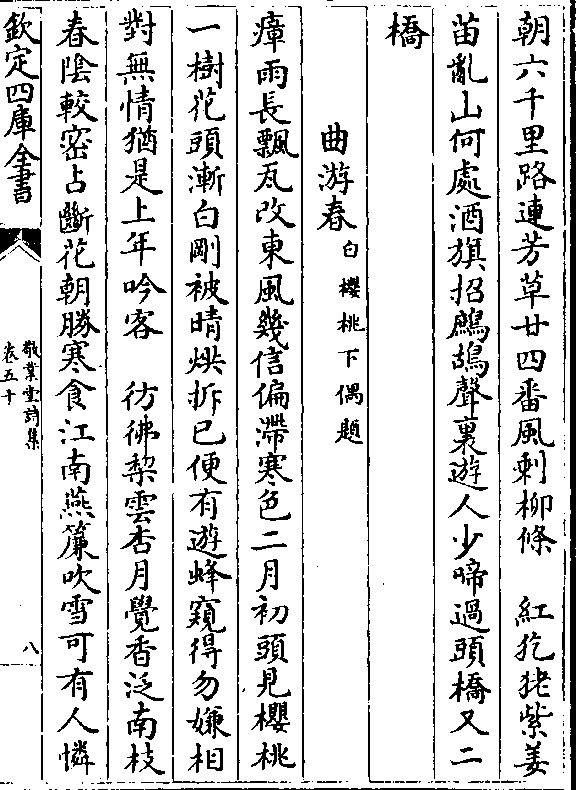 朝六千里路連芳草廿四番風剩柳條　紅犵狫紫姜
苗亂山何處酒旗招鷓鴣聲裏遊人少啼過頭橋又二
橋
曲游春白櫻桃下偶題
瘴雨長飄瓦改東風幾信偏滯寒色二月初頭見櫻桃
一樹花頭漸白剛被晴烘拆已便有遊蜂窺得勿嫌相
對無情猶是上年吟客　彷彿梨雲杏月覺香泛南枝
春陰較密占斷花朝勝寒食江南燕簾吹雪可有人憐
欽定四庫全書
敬業堂詩集
卷五十
八